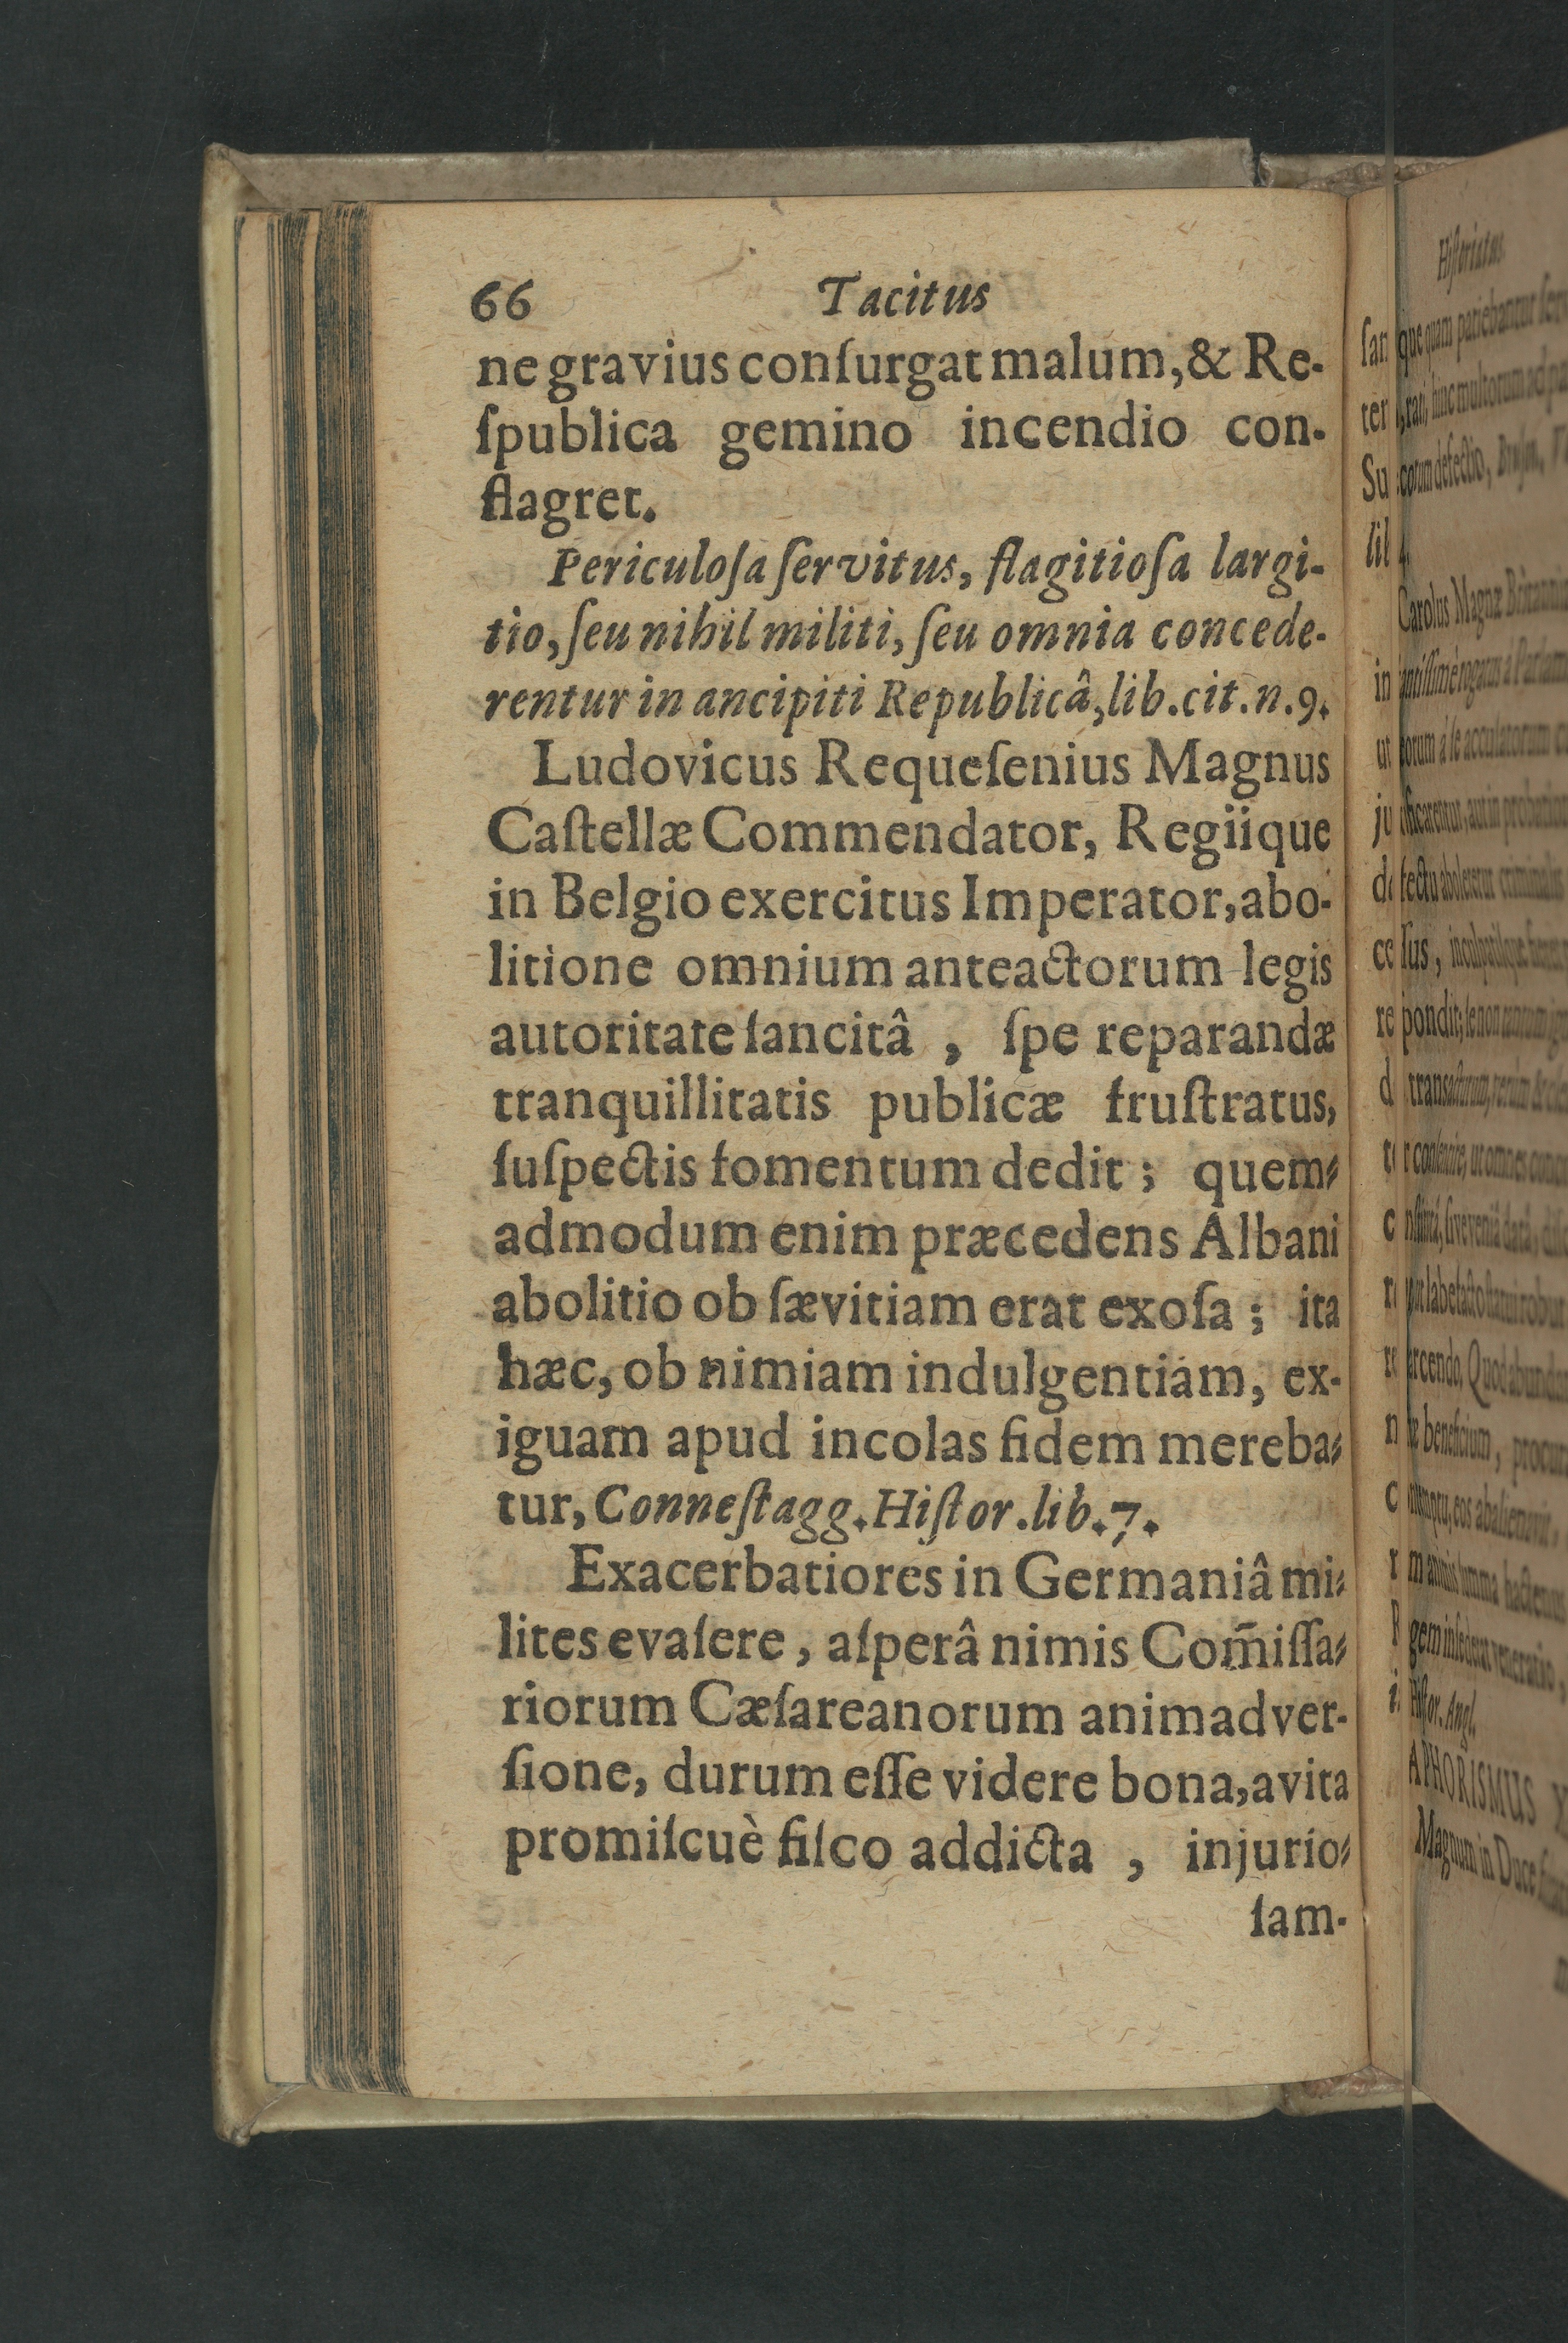 66 Tacitus
ne gravius conſurgat malum, & Re-
ſpublica gemino incendio con-
flagret.
Periculoſa ſervitus, flagitioſa largi-
tio, ſeu nihil militi, ſeu omnia concede-
rentur in ancipiti Republicâ, lib. cit. n. 9.
Ludovicus Requeſenius Magnus
Caſtellæ Commendator, Regiique
in Belgio exercitus Imperator, abo-
litione omnium anteactorum legis
autoritate ſancitâ, ſpe reparandæ
tranquillitatis publicæ fruſtratus,
ſuſpectis fomentum dedit; quem-
admodum enim præcedens Albani
abolitio ob ſævitiam erat exoſa; ita
hæc, ob nimiam indulgentiam, ex-
iguam apud incolas fidem mereba-
tur, Conneſtagg. Hiſtor. lib. 7.
Exacerbatiores in Germaniâ mi-
lites evaſere, aſperâ nimis Com̃iſſa-
riorum Cæſareanorum animadver-
ſione, durum eſſe videre bona, avita
promiſcuè fiſco addicta, injurio-
ſam-
Hiſtoriatus.
que quam patiebantur
Carolus Magnæ
Hiſtor. Angl.
APHORISMUS
Magnum in Duce